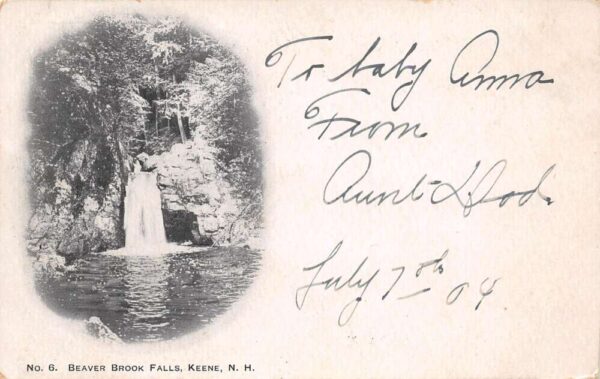 To baby Anna
From
Aunt Dod.
July 7th 04.
No. 6. Beaver Brook Falls, Keene, N. H.